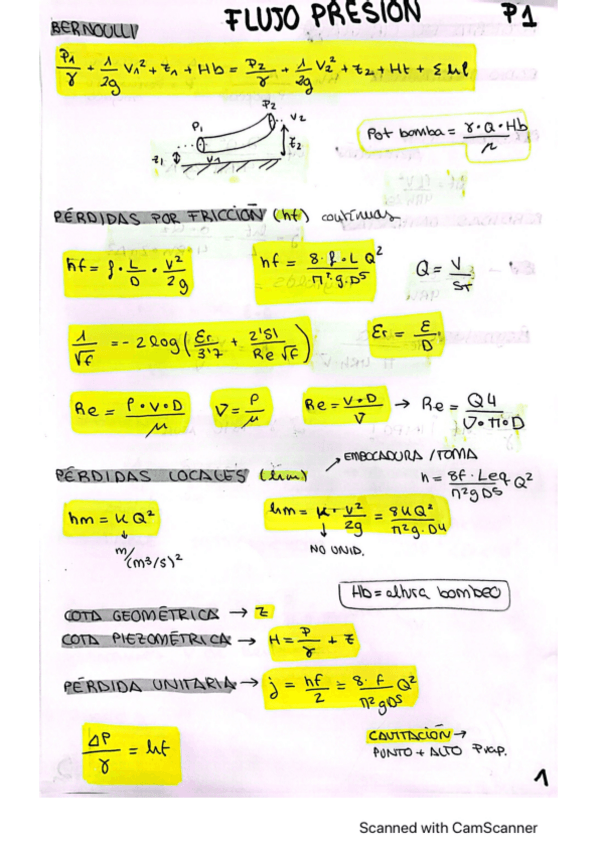 FLUJO PRESIÓN P1
BERNOULLI
P1/γ + 1/2g V1² + z1 + Hb = P2/γ + 1/2g V2² + z2 + Ht + Σhl
P2
V2
P1
z2
z1
V1
Pot bomba = γ·Q·Hb/μ
PÉRDIDAS POR FRICCIÓN (hf) continuas
hf = f · L/D · V²/2g
hf = 8·f·L Q²/π²·g·D5
Q = V/ST
1/√f = -2log(Er/3'7 + 2'51/Re√f)
Er = E/D
Re = ρ·V·D/μ
ν = ρ/μ
Re = V·D/ν → Re = Q4/ν·π·D
PÉRDIDAS LOCALES (hm)
→ EMBOCADURA / TOMA
h = 8f·Leq/π²gD5 Q²
hm = K Q²
↓
m/(m3/s)²
hm = K · V²/2g = 8KQ²/π²g·D4
↓
NO UNID.
Hb = altura bombeo
COTA GEOMÉTRICA → z
COTA PIEZOMÉTRICA → H = P/γ + z
PÉRDIDA UNITARIA → j = hf/2 = 8·f/π²gD5 Q²
ΔP/γ = hf
CAVITACIÓN →
PUNTO + ALTO Pvap.
1
Scanned with CamScanner